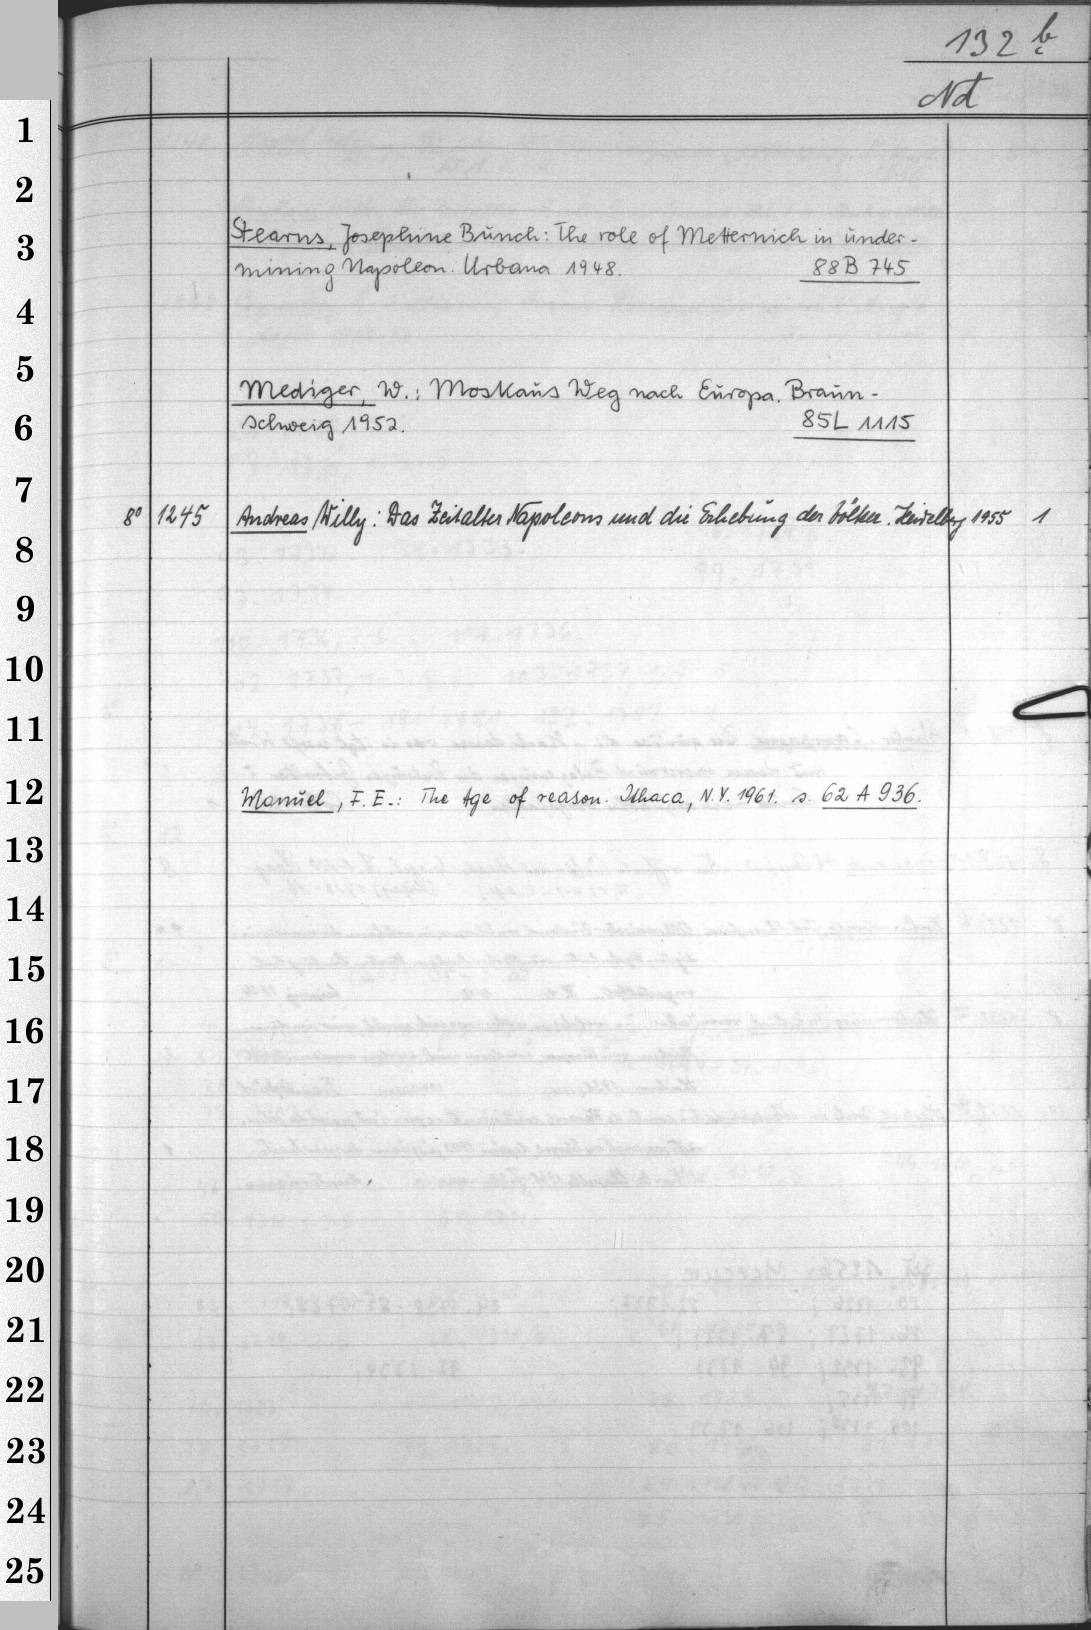 132 b
Nd
1
2
3
4
5
6
7
8
9
10
11
12
13
14
15
16
17
18
19
20
21
22
23
24
25
Stearns, Josephine Bunch: The role of Metternich in under-
mining Napoleon. Urbana 1948. 88B 745
Mediger, W.: Moskaus Weg nach Europa. Braun-
schweig 1952. 85L 1115
8° 1245 Andreas Willy: Das Zeitalter Napoleons und die Erhebung der Völker. Heidelberg 1955 1
Manuel, F. E.: The Age of reason. Ithaca, N.Y. 1961. s. 62 A 936.